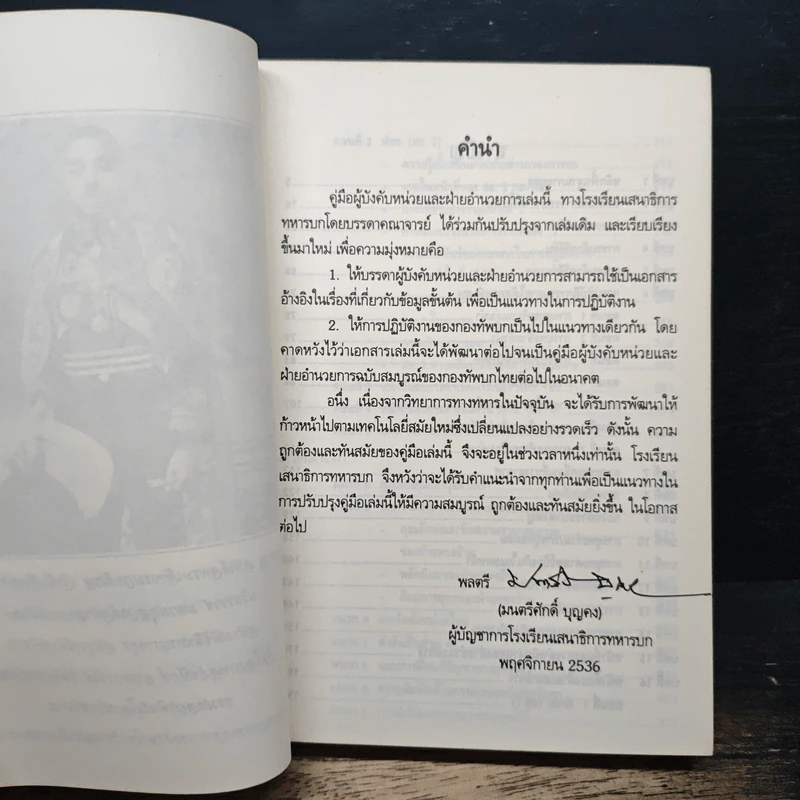 คำนำ
คู่มือผู้บังคับหน่วยและฝ่ายอำนวยการเล่มนี้ ทางโรงเรียนเสนาธิการ
ทหารบกโดยบรรดาคณาจารย์ ได้ร่วมกันปรับปรุงจากเล่มเดิม และเรียบเรียง
ขึ้นมาใหม่ เพื่อความมุ่งหมายคือ
1. ให้บรรดาผู้บังคับหน่วยและฝ่ายอำนวยการสามารถใช้เป็นเอกสาร
อ้างอิงในเรื่องที่เกี่ยวกับข้อมูลขั้นต้น เพื่อเป็นแนวทางในการปฏิบัติงาน
2. ให้การปฏิบัติงานของกองทัพบกเป็นไปในแนวทางเดียวกัน โดย
คาดหวังไว้ว่าเอกสารเล่มนี้จะได้พัฒนาต่อไปจนเป็นคู่มือผู้บังคับหน่วยและ
ฝ่ายอำนวยการฉบับสมบูรณ์ของกองทัพบกไทยต่อไปในอนาคต
อนึ่ง เนื่องจากวิทยาการทางทหารในปัจจุบัน จะได้รับการพัฒนาให้
ก้าวหน้าไปตามเทคโนโลยี่สมัยใหม่ซึ่งเปลี่ยนแปลงอย่างรวดเร็ว ดังนั้น ความ
ถูกต้องและทันสมัยของคู่มือเล่มนี้ จึงจะอยู่ในช่วงเวลาหนึ่งเท่านั้น โรงเรียน
เสนาธิการทหารบก จึงหวังว่าจะได้รับคำแนะนำจากทุกท่านเพื่อเป็นแนวทางใน
การปรับปรุงคู่มือเล่มนี้ให้มีความสมบูรณ์ ถูกต้องและทันสมัยยิ่งขึ้น ในโอกาส
ต่อไป
พลตรี
(มนตรีศักดิ์ บุญคง)
ผู้บัญชาการโรงเรียนเสนาธิการทหารบก
พฤศจิกายน 2536